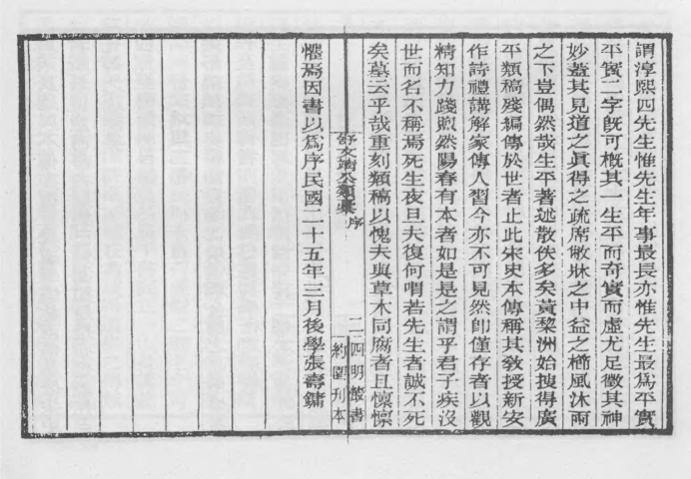 謂淳熙四先生惟先生年事最長亦惟先生最爲平實
平實二字旣可概其一生平而奇實而虛尤足徵其神
妙蓋其見道之眞得之疏席敝牀之中益之櫛風沐雨
之下豈偶然哉生平著述散佚多矣黃黎洲始搜得廣
平類稿殘編傳於世者止此宋史本傳稱其敎授新安
作詩禮講解家傳人習今亦不可見然卽僅存者以觀
精知力踐煦然陽春有本者如是是之謂乎君子疾沒
世而名不稱焉死生夜旦夫復何喟若先生者誠不死
矣墓云乎哉重刻類稿以愧夫與草木同腐者且懷懍
舒文靖公類藁 序
二
四明叢書
約園刊本
懼焉因書以爲序民國二十五年三月後學張壽鏞